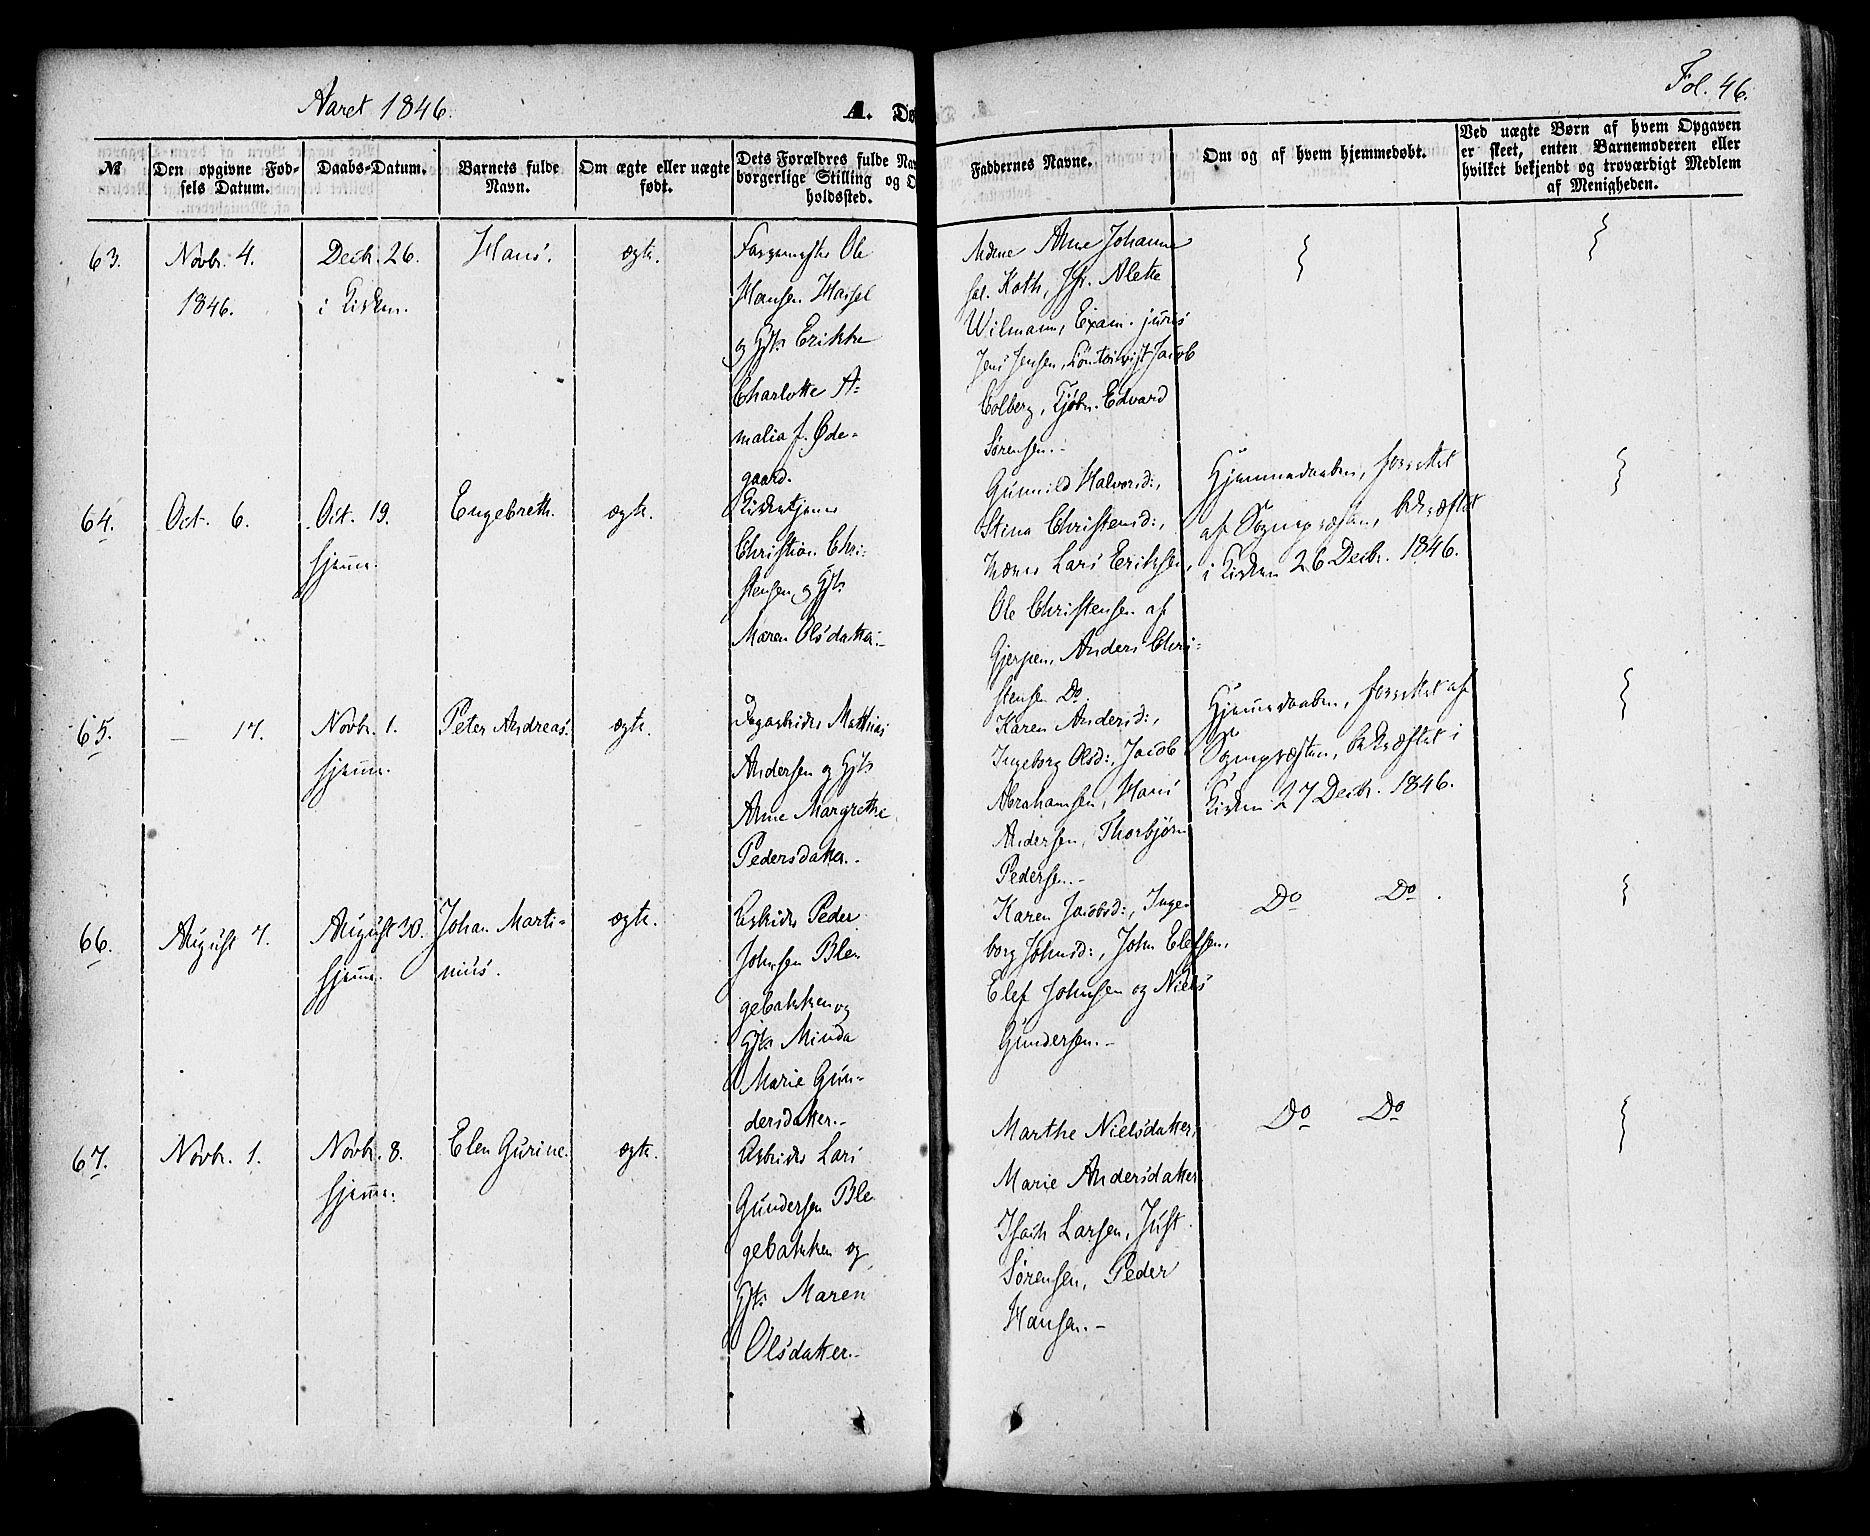 Aaret 1846.
A. Dø
Fol. 46.
№
Den opgivne Fød-
sels Datum.
Daabs-Datum.
Barnets fulde
Navn.
Om ægte eller uægte
født.
Dets Forældres fulde Nav
borgerlige Stilling og O
holdssted.
Faddernes Navne.
Om og af hvem hjemmedøbt.
Ved uægte Børn af hvem Opgaven
er skeet, enten Barnemoderen eller
hvilket bekjendt og troværdigt Medlem
af Menigheden.
63.
Novbr. 4.
1846.
Decbr. 26.
i Kirken.
Hans.
ægte.
Ole
Hansen Hassel
og Hst. Erikke
Charlotte A-
malia f. Øde-
gaard.
Mdme Anne Johanne
sal. Koth, Jfr. Alette
Wilmann, Exam. juris
Jens Jensen, Jacob
Colberg, Kjøbm. Edvard
Sørensen.-
64.
Oct. 6.
Oct. 19.
hjemme.
Engebreth.
ægte.
Kirketjener
Christian Chri-
stensen og Hst.
Maren Olsdatter.-
Gunnild Halvorsd:,
Stina Christensd:,
Lars Eriksen,
Ole Christensen af
Gjerpen, Anders Chri-
stensen Do
Hjemmedaaben, forrettet
af Sognepræsten, bekræftet
i Kirken 26 Decbr. 1846.
65.
— 17.
Novbr. 1.
hjemme.
Peter Andreas.
ægte.
Dagarbeider Mathias
Andersen og Hst.
Anne Margrethe
Pedersdatter.-
Karen Andersd:,
Ingeborg Olsd:, Jacob
Abrahamsen, Hans
Andersen, Thorbjørn
Pedersen.-
Hjemmedaaben, forrettet af
Sognepræsten, bekræftet i
Kirken 27 Decbr. 1846.
66.
August 7.
August 30.
hjemme.
Johan Marti-
nius.
ægte.
Arbeider Peder
Johnsen Ble
gebakken og
Hst. Minda
Marie Gun-
dersdatter.-
Karen Jacobsd:, Inge-
borg Johnsd:, John Elefsen,
Elef Johnsen og Niels
Gundersen.-
Do Do.
67.
Novbr. 1.
Novbr. 8.
hjemme.
Elen Gurine.
ægte.
Arbeider Lars
Gundersen Ble
gebakken og
Hst. Maren
Olsdatter.-
Marthe Nielsdatter,
Marie Andersdatter
Isach Larsen, Just
Sørensen, Peder
Hansen.-
Do Do